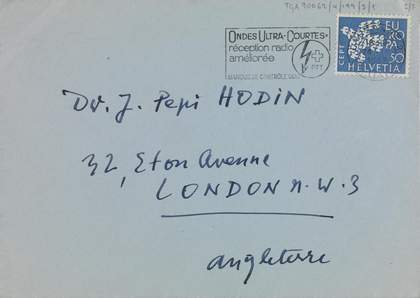 TGA 20062/4/199/3/1
ONDES ULTRA-COURTES=
réception radio
améliorée
PTT
EUROPA
CEPT
50
HELVETIA
Dr. J. Pepi HODIN
32, Eton Avenue
LONDON N.W.3
Angleterre